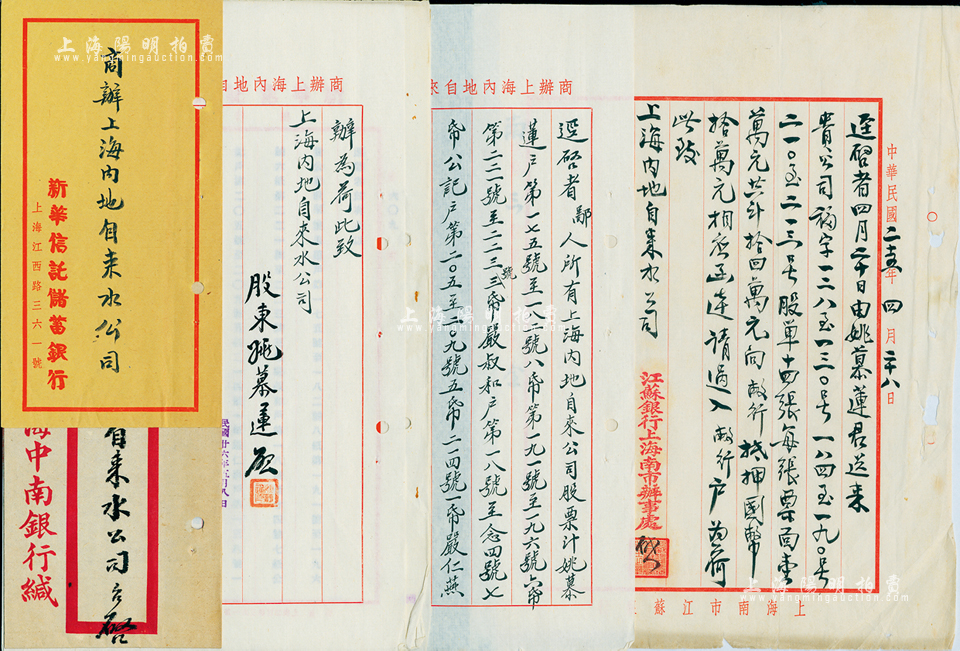 中華民國二十五年四月二十八日
逕啓者四月二十日由姚慕蓮君送來
貴公司福字一二八至一三〇号一八四至一九〇号
二一〇至二一三号股單十四張每張票面壹
萬元共計拾四萬元向敝行抵押國幣
拾萬元相應函達請過入敝行户為荷
此致
上海内地自來水公司
江蘇銀行上海南市辦事處 啟
上海南市江蘇
商辦上海內地自來
逕啓者鄙人所有上海内地自來公司股票汁姚慕
蓮户第一七五號至一八二號八帋第一九一號至一九六號六帋
第二二一號至二二三號三帋嚴叔和户第一八號至念四號七
帋公記户第二〇五至二〇九號五帋二一四號一帋嚴仁燕
商辦上海內地自
辦為荷此致
上海内地自來水公司
股東姚慕蓮啟
商辦上海内地自来水公司
新華信託儲蓄銀行
上海江西路三六一號
自来水公司
海中南銀行緘
上海陽明拍賣
www.yangmingauction.com
上海陽明拍賣
www.yangmingauction.com
上海陽明拍賣
www.yangmingauction.com